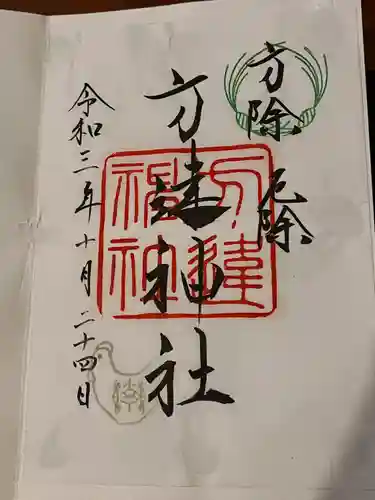 方除 厄除
方違神社
方違神社
令和三年十月二十四日